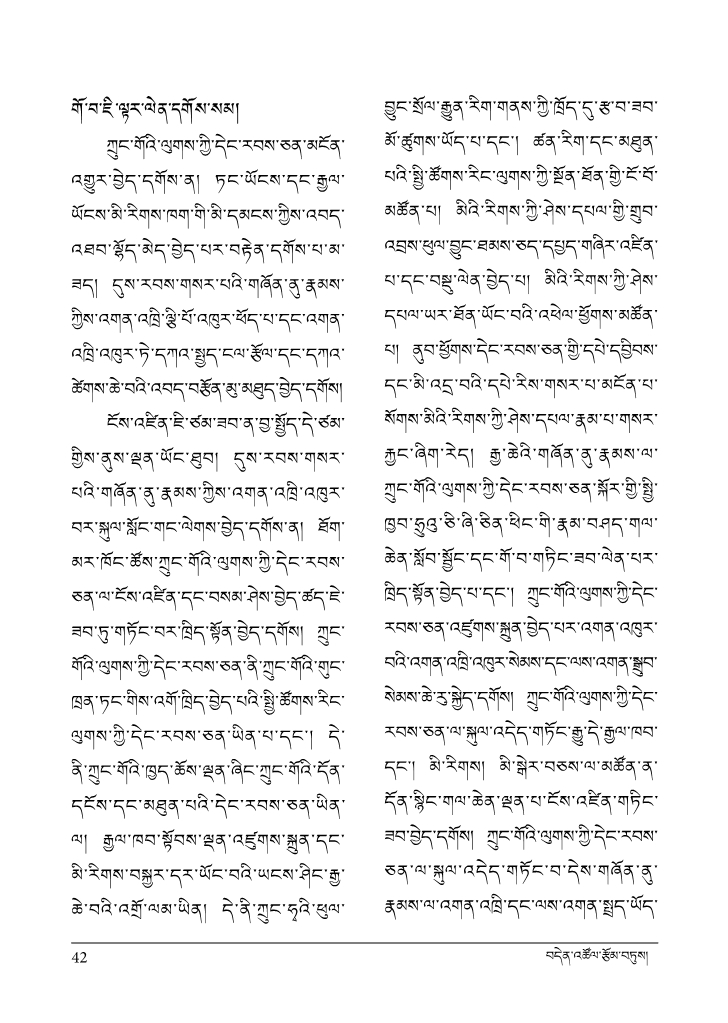 གོ་བ་ཇི་ལྟར་ལེན་དགོས་སམ།
ཀྲུང་གོའི་ལུགས་ཀྱི་དེང་རབས་ཅན་མངོན་
འགྱུར་བྱེད་དགོས་ན། ཏང་ཡོངས་དང་རྒྱལ་
ཡོངས་མི་རིགས་ཁག་གི་མི་དམངས་ཀྱིས་འབད་
འཐབ་ལྷོད་མེད་བྱེད་པར་བརྟེན་དགོས་པ་མ་
ཟད། དུས་རབས་གསར་པའི་གཞོན་ནུ་རྣམས་
ཀྱིས་འགན་འཁྲི་ལྕི་པོ་འཁུར་ཕོད་པ་དང་འགན་
འཁྲི་འཁུར་ཏེ་དཀའ་སྤྱད་ངལ་རྩོལ་དང་དཀའ་
ཚེགས་ཆེ་བའི་འབད་བརྩོན་མུ་མཐུད་བྱེད་དགོས།
ངོས་འཛིན་ཇི་ཙམ་ཟབ་ན་བྱ་སྤྱོད་དེ་ཙམ་
གྱིས་ནུས་ལྡན་ཡོང་ཐུབ། དུས་རབས་གསར་
པའི་གཞོན་ནུ་རྣམས་ཀྱིས་འགན་འཁྲི་འཁུར་
བར་སྐུལ་སློང་གང་ལེགས་བྱེད་དགོས་ན། ཐོག་
མར་ཁོང་ཚོས་ཀྲུང་གོའི་ལུགས་ཀྱི་དེང་རབས་
ཅན་ལ་ངོས་འཛིན་དང་བསམ་ཤེས་བྱེད་ཚད་ཇེ་
ཟབ་ཏུ་གཏོང་བར་ཁྲིད་སྟོན་བྱེད་དགོས། ཀྲུང་
གོའི་ལུགས་ཀྱི་དེང་རབས་ཅན་ནི་ཀྲུང་གོའི་གུང་
ཁྲན་ཏང་གིས་འགོ་ཁྲིད་བྱེད་པའི་སྤྱི་ཚོགས་རིང་
ལུགས་ཀྱི་དེང་རབས་ཅན་ཡིན་པ་དང་། དེ་
ནི་ཀྲུང་གོའི་ཁྱད་ཆོས་ལྡན་ཞིང་ཀྲུང་གོའི་དོན་
དངོས་དང་མཐུན་པའི་དེང་རབས་ཅན་ཡིན་
ལ། རྒྱལ་ཁབ་སྟོབས་ལྡན་འཛུགས་སྐྲུན་དང་
མི་རིགས་བསྐྱར་དར་ཡོང་བའི་ཡངས་ཤིང་རྒྱ་
ཆེ་བའི་འགྲོ་ལམ་ཡིན། དེ་ནི་ཀྲུང་ཧྭའི་ཕུལ་
བྱུང་སྲོལ་རྒྱུན་རིག་གནས་ཀྱི་ཁྲོད་དུ་རྩ་བ་ཟབ་
མོ་ཚུགས་ཡོད་པ་དང་། ཚན་རིག་དང་མཐུན་
པའི་སྤྱི་ཚོགས་རིང་ལུགས་ཀྱི་སྔོན་ཐོན་གྱི་ངོ་བོ་
མཚོན་པ། མིའི་རིགས་ཀྱི་ཤེས་དཔལ་གྱི་གྲུབ་
འབྲས་ཕུལ་བྱུང་ཐམས་ཅད་དཔྱད་གཞིར་འཛིན་
པ་དང་བསྡུ་ལེན་བྱེད་པ། མིའི་རིགས་ཀྱི་ཤེས་
དཔལ་ཡར་ཐོན་ཡོང་བའི་འཕེལ་ཕྱོགས་མཚོན་
པ། ནུབ་ཕྱོགས་དེང་རབས་ཅན་གྱི་དཔེ་དབྱིབས་
དང་མི་འདྲ་བའི་དཔེ་རིས་གསར་པ་མངོན་པ་
སོགས་མིའི་རིགས་ཀྱི་ཤེས་དཔལ་རྣམ་པ་གསར་
རྐྱང་ཞིག་རེད། རྒྱ་ཆེའི་གཞོན་ནུ་རྣམས་ལ་
ཀྲུང་གོའི་ལུགས་ཀྱི་དེང་རབས་ཅན་སྐོར་གྱི་སྤྱི་
ཁྱབ་ཧྲུའུ་ཅི་ཞི་ཅིན་ཕིང་གི་རྣམ་བཤད་གལ་
ཆེན་སློབ་སྦྱོང་དང་གོ་བ་གཏིང་ཟབ་ལེན་པར་
ཁྲིད་སྟོན་བྱེད་པ་དང་། ཀྲུང་གོའི་ལུགས་ཀྱི་དེང་
རབས་ཅན་འཛུགས་སྐྲུན་བྱེད་པར་འགན་འཁུར་
བའི་འགན་འཁྲི་འཁུར་སེམས་དང་ལས་འགན་སྒྲུབ་
སེམས་ཆེ་རུ་སྐྱེད་དགོས། ཀྲུང་གོའི་ལུགས་ཀྱི་དེང་
རབས་ཅན་ལ་སྐུལ་འདེད་གཏོང་རྒྱུ་དེ་རྒྱལ་ཁབ་
དང་། མི་རིགས། མི་སྒེར་བཅས་ལ་མཚོན་ན་
དོན་སྙིང་གལ་ཆེན་ལྡན་པ་ངོས་འཛིན་གཏིང་
ཟབ་བྱེད་དགོས། ཀྲུང་གོའི་ལུགས་ཀྱི་དེང་རབས་
ཅན་ལ་སྐུལ་འདེད་གཏོང་བ་དེས་གཞོན་ནུ་
རྣམས་ལ་འགན་འཁྲི་དང་ལས་འགན་སྤྲད་ཡོད་
42
བདེན་འཚོལ་རྩོམ་བཏུས།